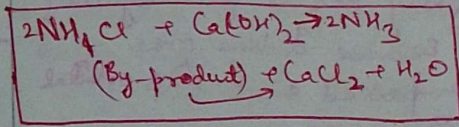 2NH₄Cl + Ca(OH)₂→2NH₃
(By-product) + CaCl₂ + H₂O